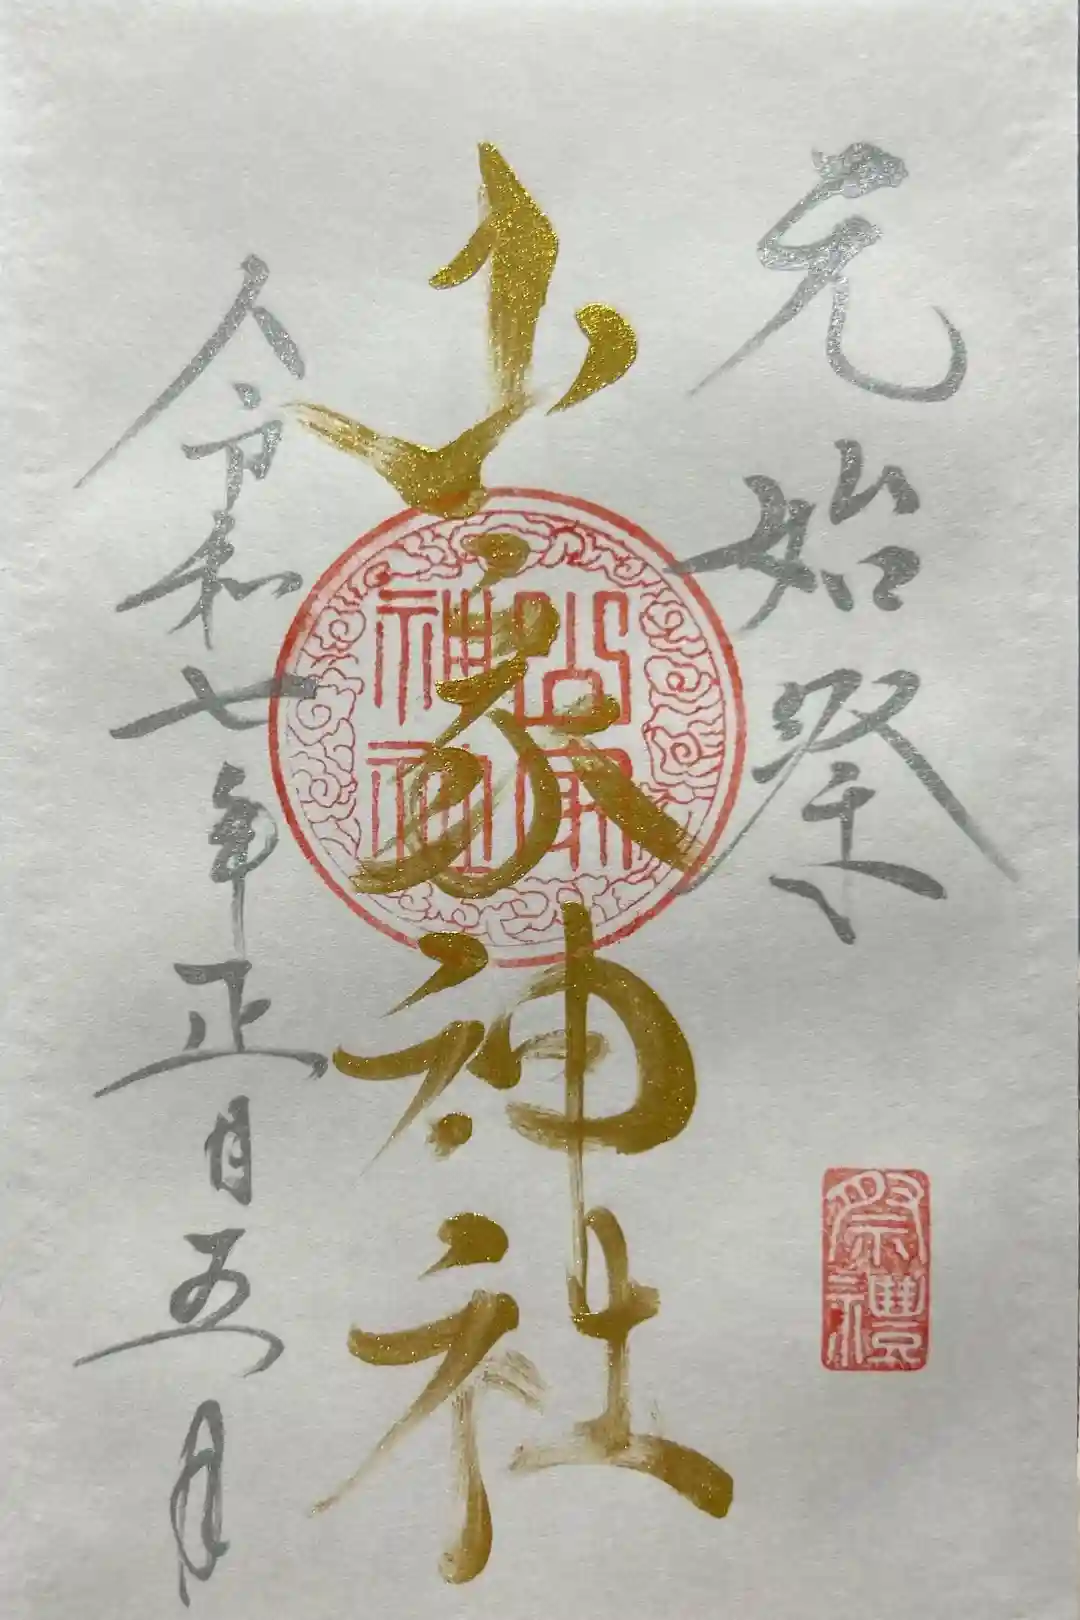 元始祭
山家神社
令和七年正月五日
山家
神社
祭禮